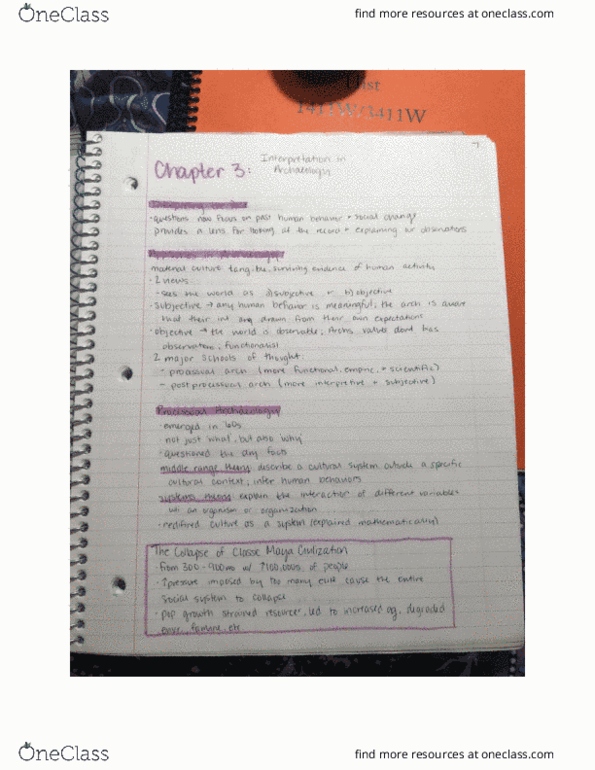 OneClass
find more resources at oneclass.com
Hist
1411W/3411W
7
Chapter 3:
Interpretation in
Archaeology
·questions now focus on past human behavior + social change
provides a lens for looking at the record + explaining our observations
Approaches in Archaeology
material culture tangible, surviving evidence of human activity
·2 views
-sees the world as a) subjective or b) objective
·subjective → any human behavior is meaningful; the arch is aware
that their int are drawn from their own expectations
·objective → the world is observable, Archs values dont bias
observation, functionalist
2 major schools of thought:
- processual arch (more functional, empiric, + scientific)
- postprocessual arch (more interpretive + subjective)
Processual Archaeology
·emerged in '60s
not just 'what', but also 'why'
·questioned the dry facts
middle range theory describe a cultural system outside a specific
cultural context, infer human behaviors
systems theory explain the interaction of different variables
w/i an organism or organization
·redifined culture as a system (explained mathematically)
The Collapse of Classic Maya Civilization
·from 300-900 w/ of people
·pressure imposed by too many cause the entire
social system to collapse
·pop growth strained resources, led to increased ag, degraded
famine, etc
OneClass
find more resources at oneclass.com